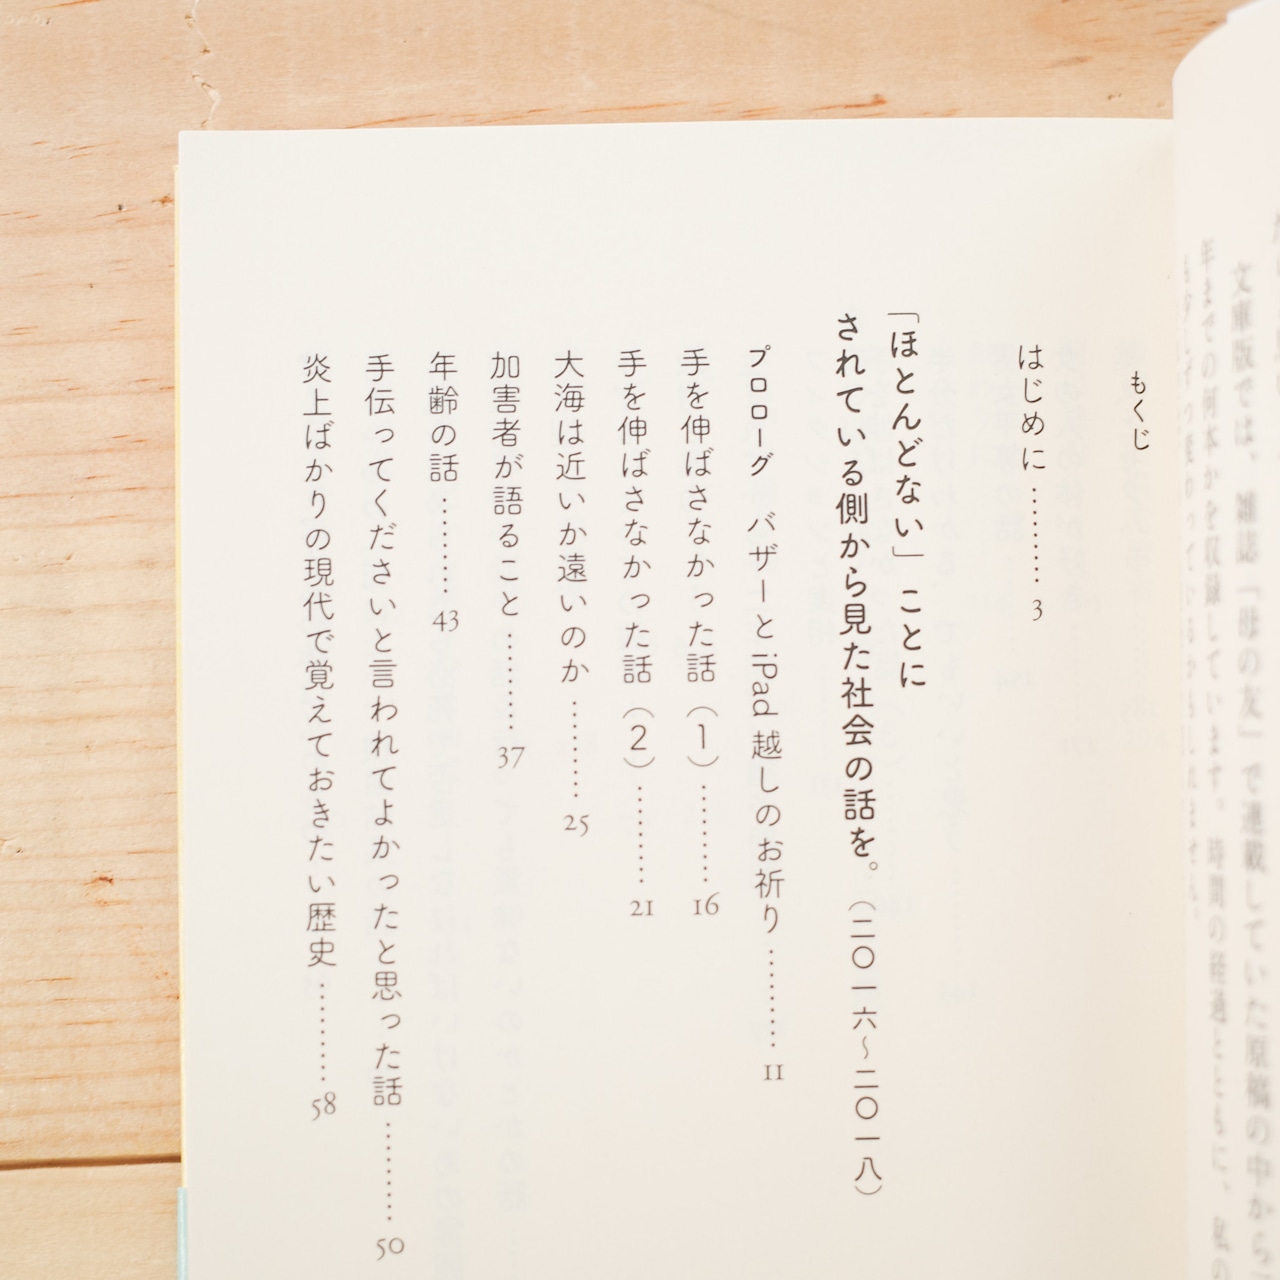 文庫版では、雑誌「母の友」で連載していた原稿の中から
年までの何本かを収録しています。時間の経過とともに、私の
もくじ
はじめに ……… 3
「ほとんどない」ことに
されている側から見た社会の話を。（二〇一六〜二〇一八）
プロローグ　バザーとiPad越しのお祈り ……… 11
手を伸ばさなかった話（1）……… 16
手を伸ばさなかった話（2）……… 21
大海は近いか遠いのか ……… 25
加害者が語ること ……… 37
年齢の話 ……… 43
手伝ってくださいと言われてよかったと思った話 ……… 50
炎上ばかりの現代で覚えておきたい歴史 ……… 58